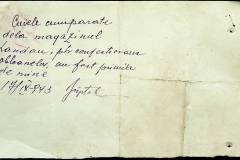 Cuiele cumparate
dela magazinul
Landau, ptr. confectionarea
obloanelor, au fost primite
de mine
17/IX-943